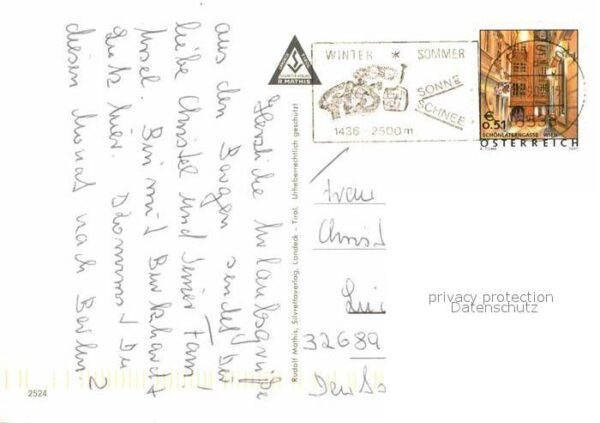 Herzliche Urlaubsgrüße
aus den Bergen sendet Dir
liebe Christel und Deiner Fam.
Ursel. Bin mit Burkhardt
hier. Kommst Du
diesen Monat nach Berlin?
Rudolf Mathis, Silvrettaverlag, Landeck - Tirol. Urheberrechtlich geschützt
R. MATHIS
WINTER * SOMMER
FISS
SONNE
SCHNEE
1436 - 2500 m
€ 0,51
SCHÖNLATERNGASSE, WIEN
ÖSTERREICH
Frau
Christ
32689
privacy protection
Datenschutz
2524